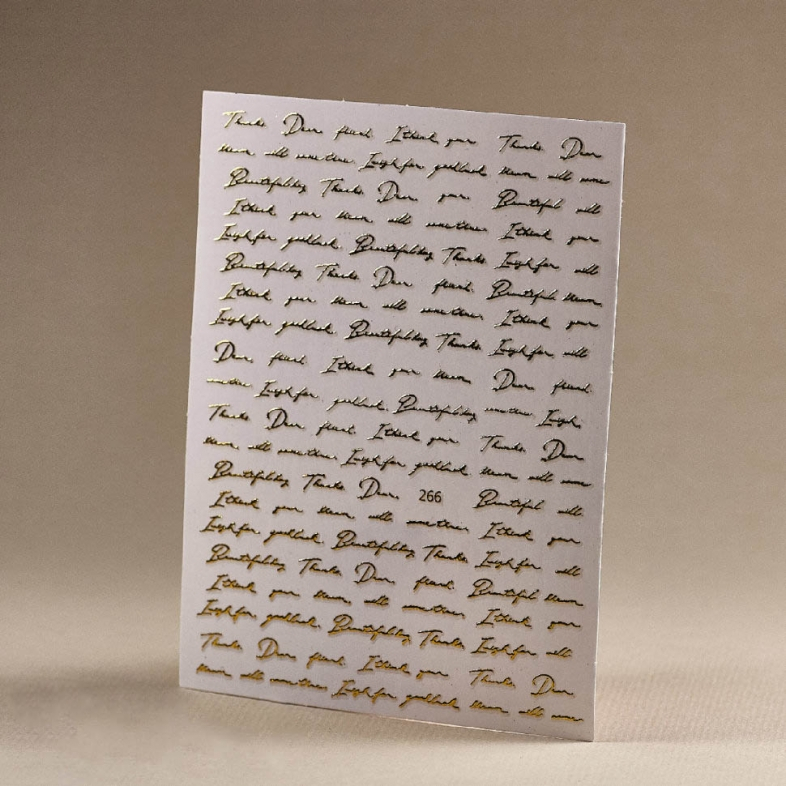 Thanks. Dear. friend. Ithink your Thanks. Dear
will sometimes. Laugh for goodluck. will some
Beautifulday Thanks. Dear. your. Beautiful will
Ithink your will sometimes. Ithink your
Laugh for goodluck. Beautifulday Thanks. Laugh for will
Beautifulday Thanks. Dear. friend. Beautiful
Ithink your will sometimes. Ithink your
Laugh for goodluck. Beautifulday Thanks. Laugh for will
Dear. friend. Ithink your Dear. friend.
sometimes. Laugh for goodluck. Beautifulday sometimes. Laugh.
Thanks. Dear. friend. Ithink your Thanks. Dear
will sometimes. Laugh for goodluck. will some
Beautifulday Thanks. Dear. 266 Beautiful will
Ithink your will sometimes. Ithink your
Laugh for goodluck. Beautifulday Thanks. Laugh for will
Beautifulday Thanks. Dear. friend. Beautiful
Ithink your will sometimes. Ithink your
Laugh for goodluck. Beautifulday Thanks. Laugh for will
Thanks. Dear. friend. Ithink your Thanks. Dear
will sometimes. Laugh for goodluck. will some